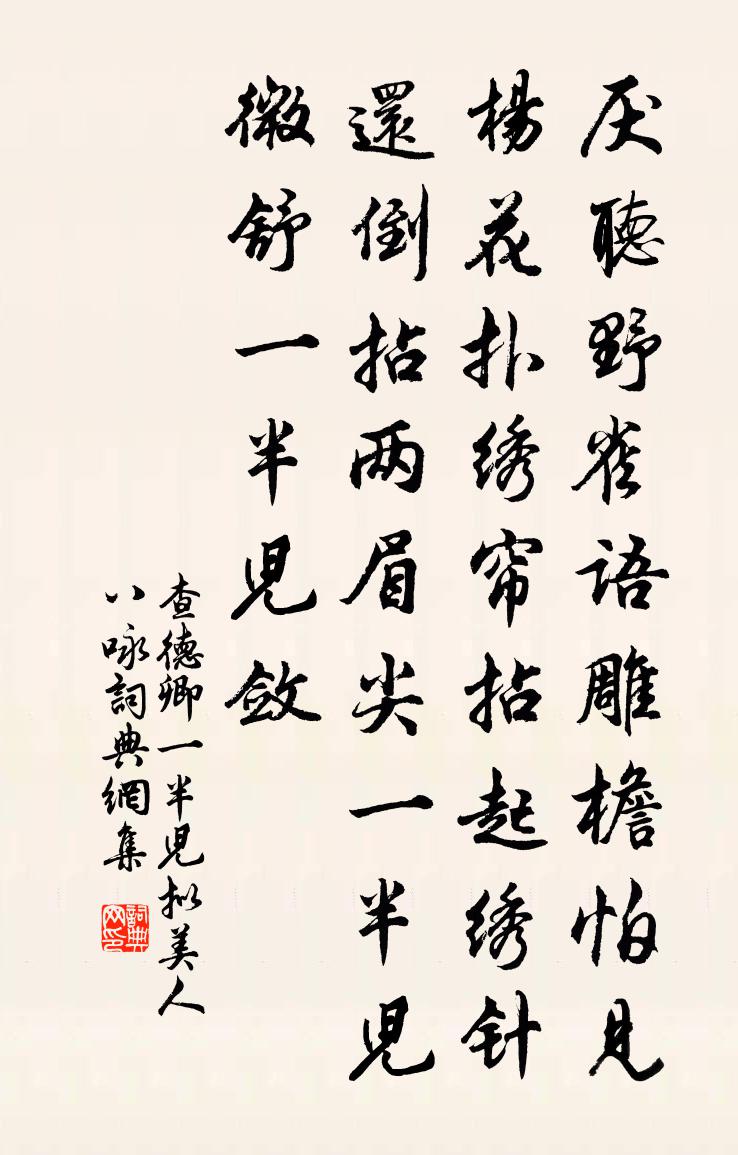 厌聽野雀語雕檐怕見
楊花扑绣帘拈起绣针
還倒拈两眉尖一半児
微舒一半児斂
查德卿一半児拟美人
八咏詞典網集
詞典网印